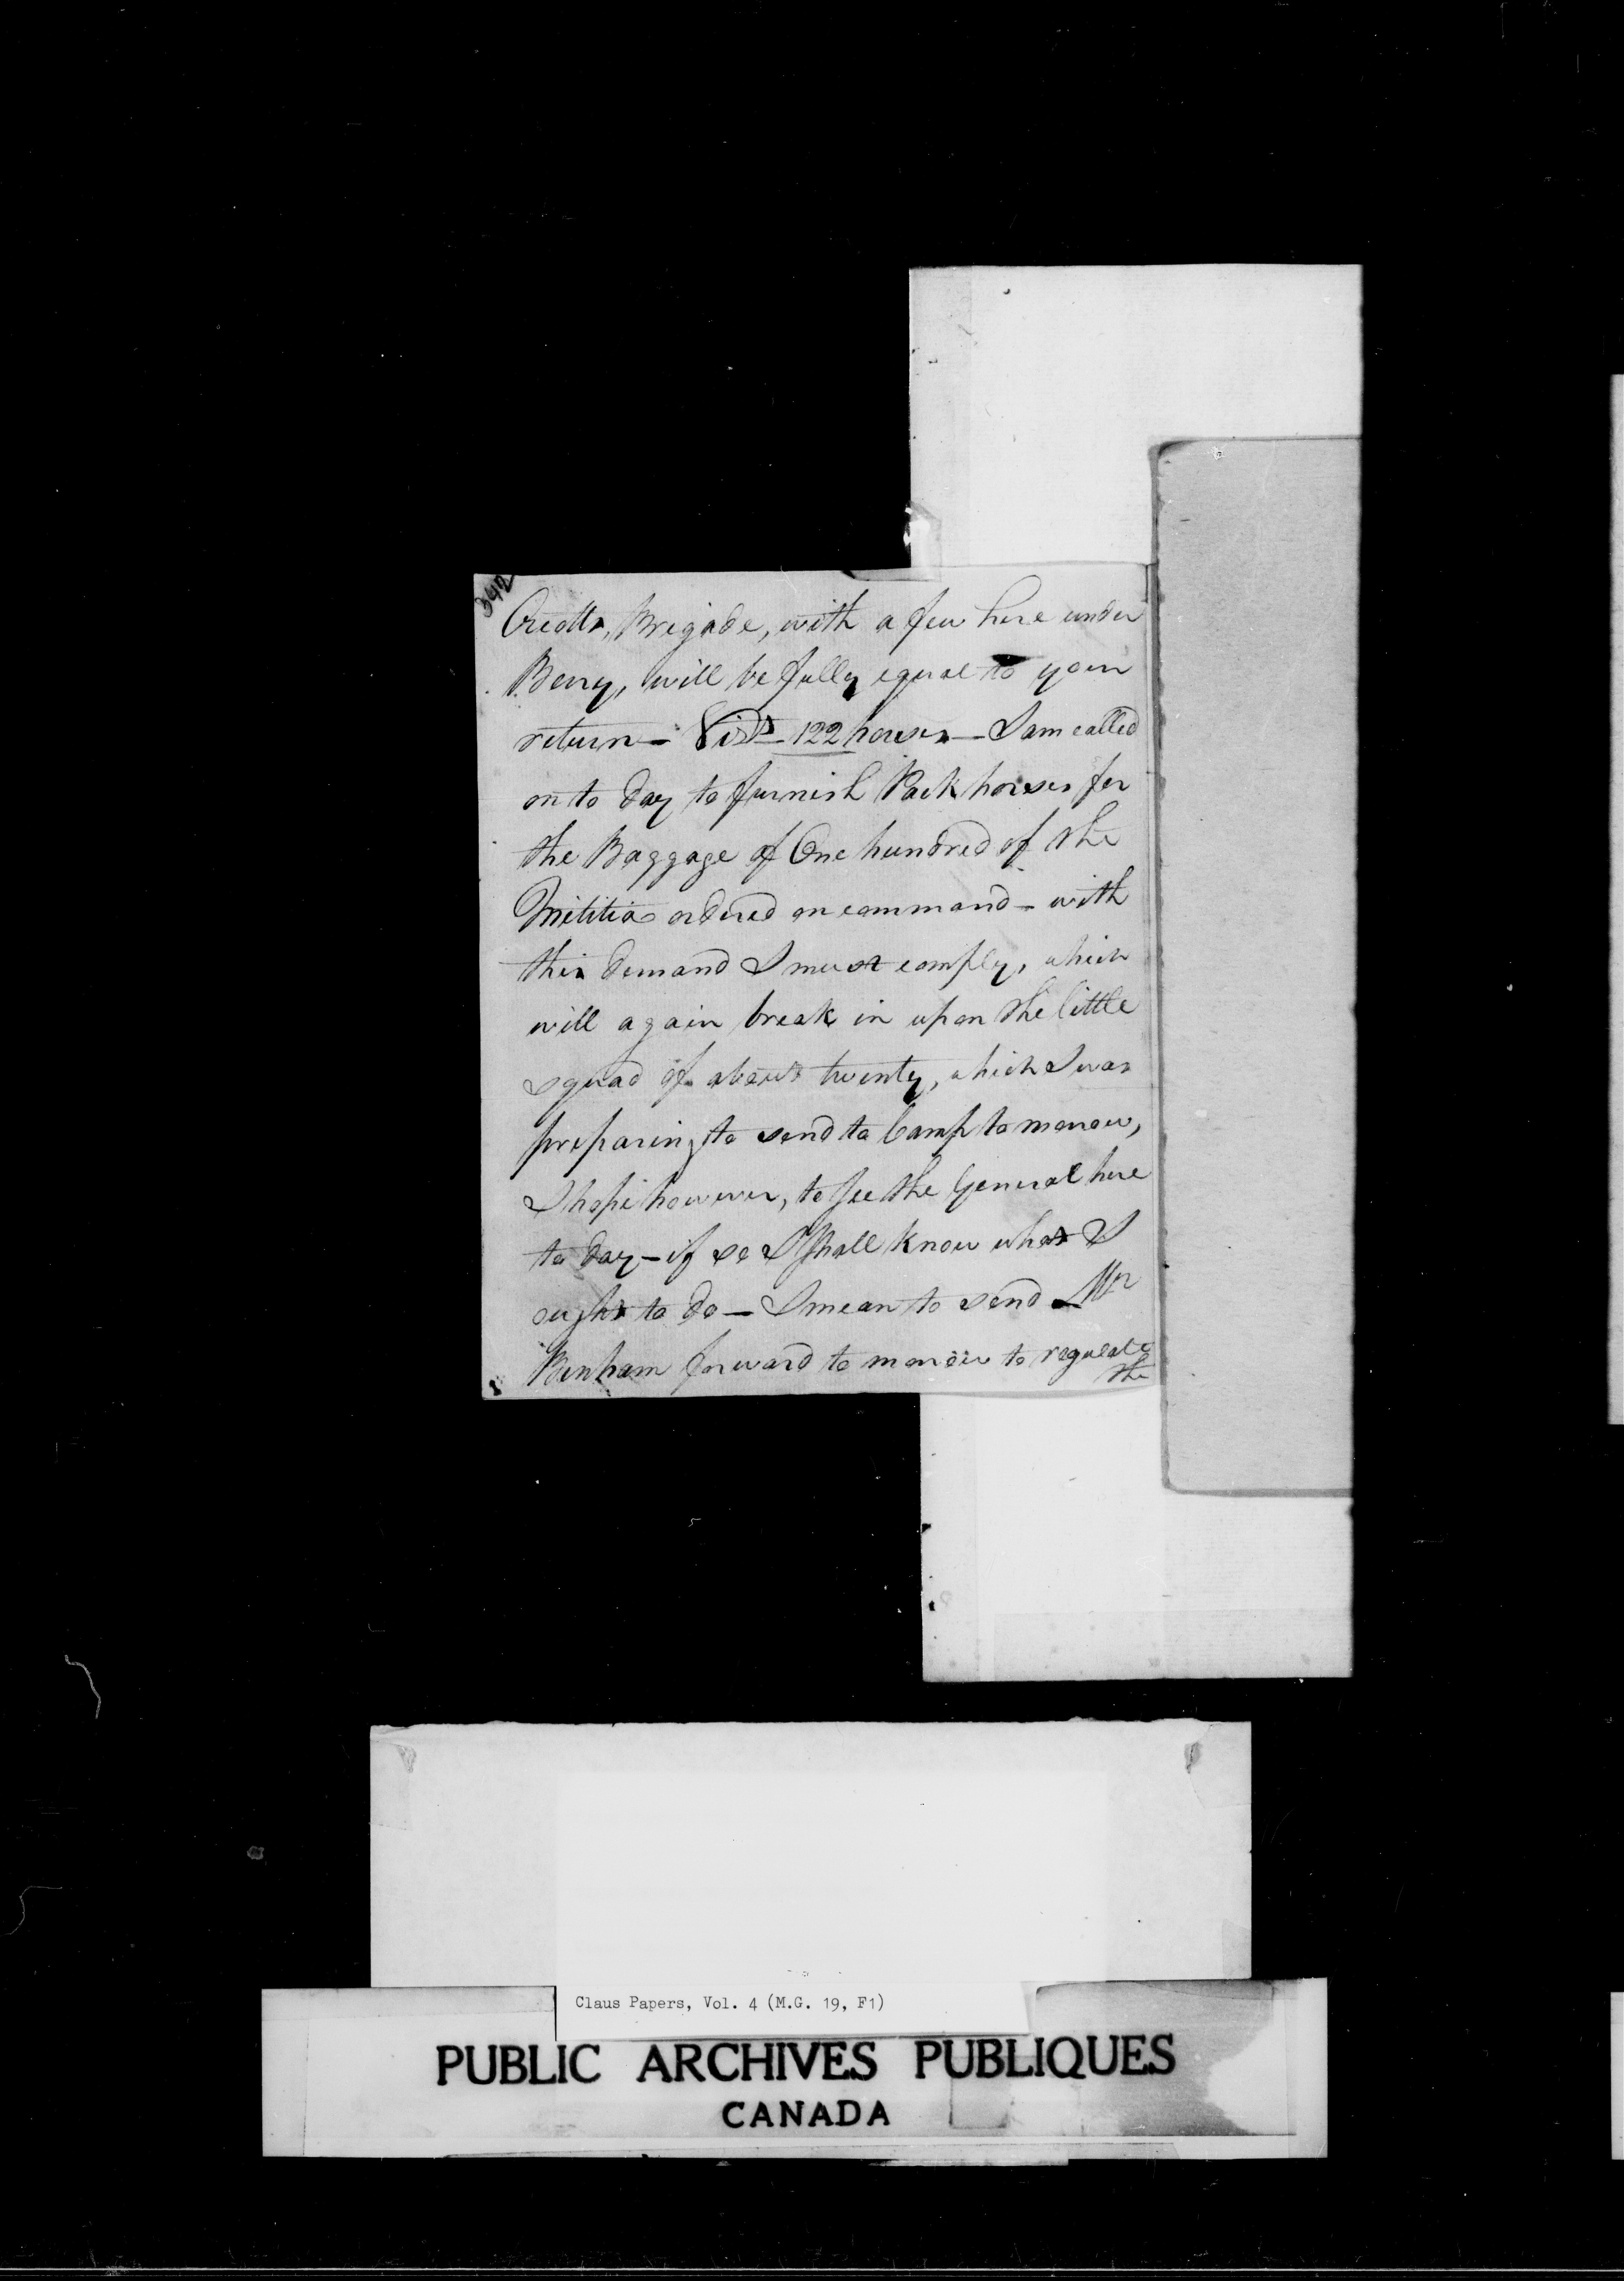 Brigade, with a few here under
Berry, will be fully equal to your
return — Vizt — 122 horses — I am called
on to day to furnish Pack horses for
the Baggage of One hundred of the
Militia ordered on command — with
this demand I must comply, which
will again break in upon the little
squad of about twenty, which I was
preparing to send to Camp to morrow,
I hope however, to see the General here
to day — if so I shall know what I
ought to do — I mean to send Mr
Benham forward to morrow to regulate
the
Claus Papers, Vol. 4 (M.G. 19, F1)
PUBLIC ARCHIVES PUBLIQUES
CANADA